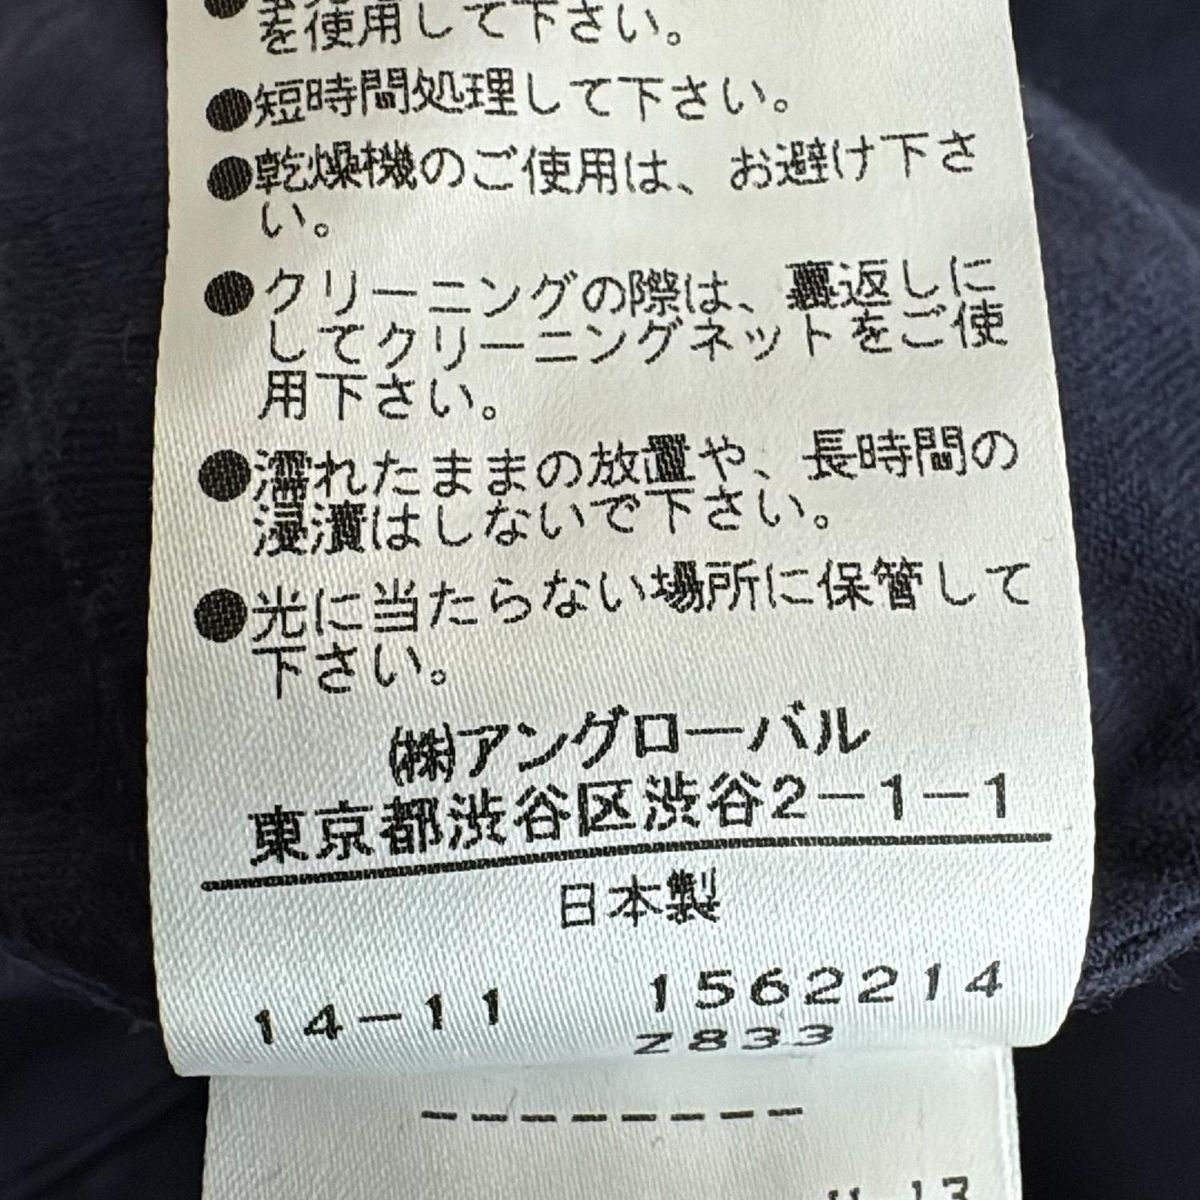 を使用して下さい。
●短時間処理して下さい。
●乾燥機のご使用は、お避け下さ
い。
●クリーニングの際は、裏返しに
してクリーニングネットをご使
用下さい。
●濡れたままの放置や、長時間の
浸漬はしないで下さい。
●光に当たらない場所に保管して
下さい。
㈱アングローバル
東京都渋谷区渋谷2-1-1
日本製
14-11 1562214
Z833
--------